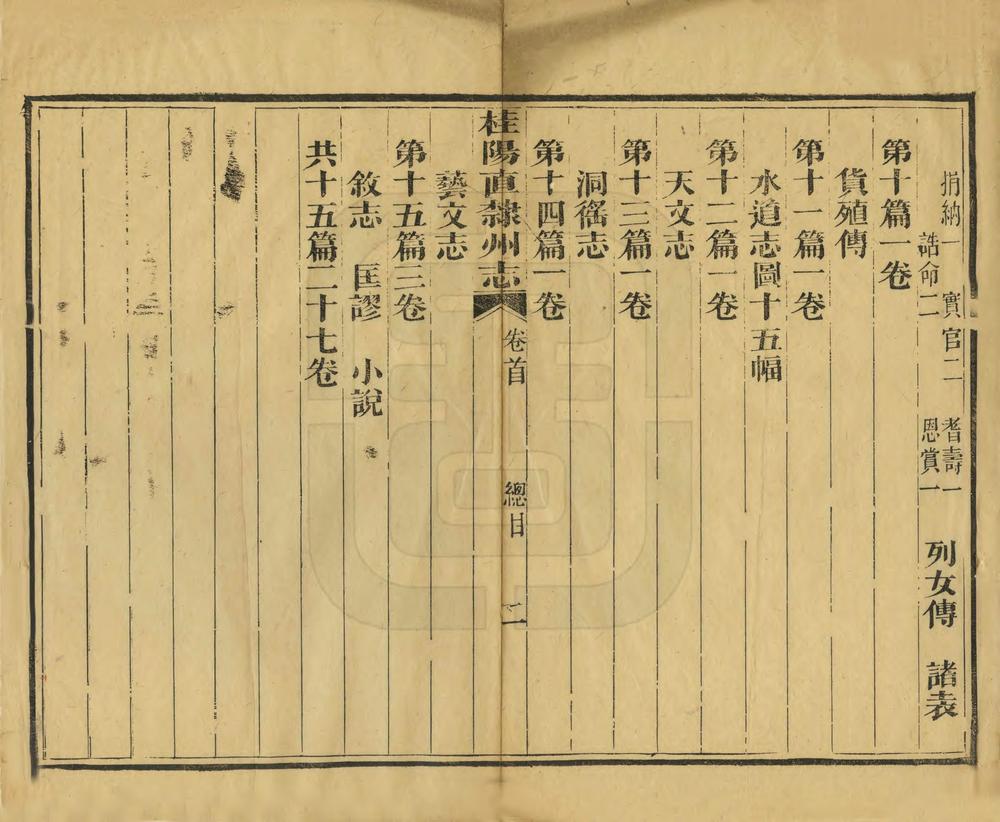 捐納一　實官二　耆壽一
誥命二　恩賞一　列女傳　諸表
第十篇一卷
貨殖傳
第十一篇一卷
水道志圖十五幅
第十二篇一卷
天文志
第十三篇一卷
洞徭志
第十四篇一卷
桂陽直隸州志　卷首　總目　二
藝文志
第十五篇三卷
敘志　匡謬　小說
共十五篇二十七卷